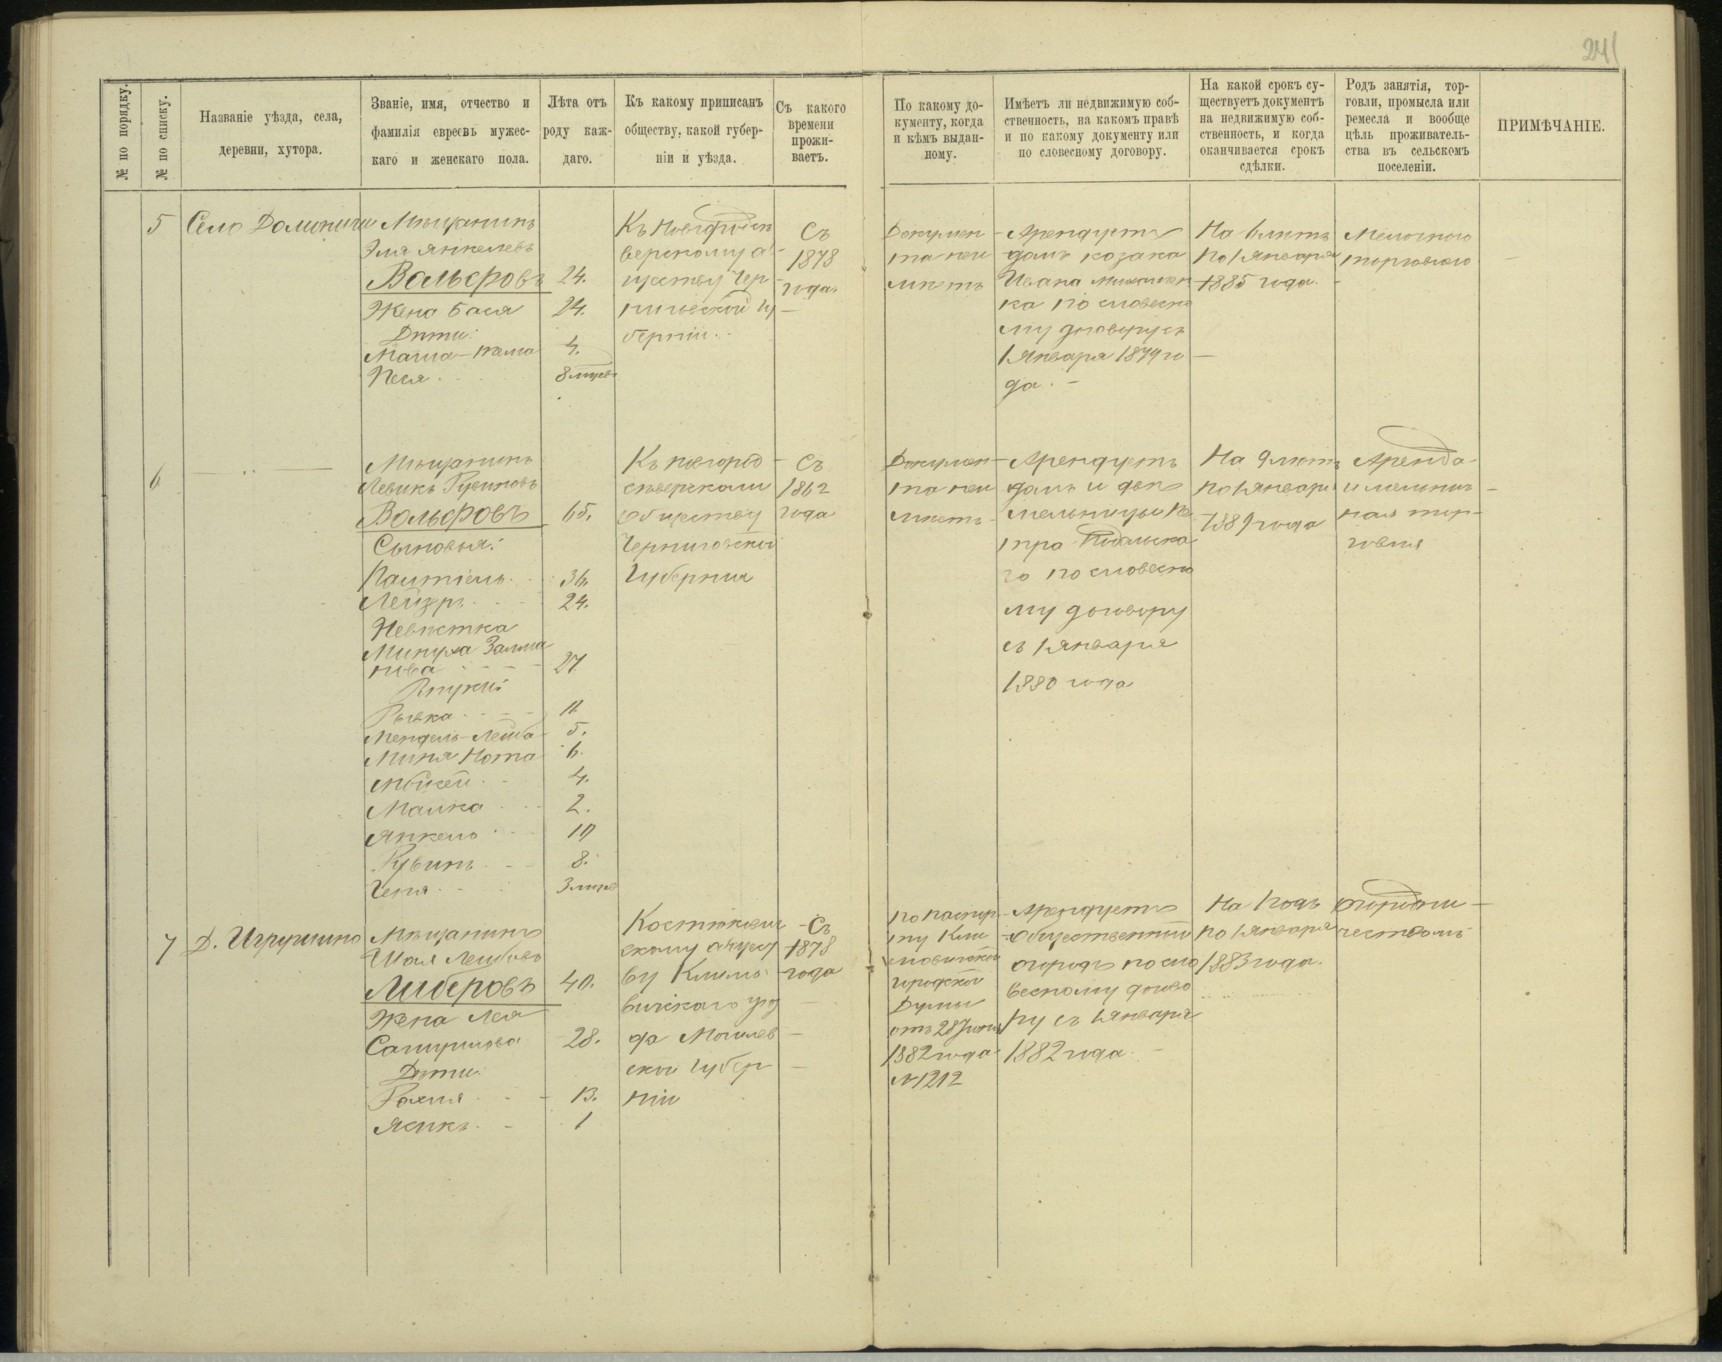 241
№ по порядку.
№ по списку.
Названіе уѣзда, села,
деревни, хутора.
Званіе, имя, отчество и
фамилія евреевъ мужес-
каго и женскаго пола.
Лѣта отъ
роду каж-
даго.
Къ какому приписанъ
обществу, какой губер-
ніи и уѣзда.
Съ какого
времени
прожи-
ваетъ.
По какому до-
кументу, когда
и кѣмъ выдан-
ному.
Имѣетъ ли недвижимую соб-
ственность, на какомъ правѣ
и по какому документу или
по словесному договору.
На какой срокъ су-
ществуетъ документъ
на недвижимую соб-
ственность, и когда
оканчивается срокъ
сдѣлки.
Родъ занятія, тор-
говли, промысла или
ремесла и вообще
цѣль проживатель-
ства въ сельскомъ
поселеніи.
ПРИМѢЧАНІЕ.
5
Село
Мѣщанинъ
Эля Янкелевъ
Вольфровъ 24.
Жена Бася 24.
Дѣти:
4.
Песя 8 мѣсяц
обществу Чер
ниговской гу
берніи
Съ
1878
года
Докумен
та неи
мѣетъ
Арендуетъ
домъ козака
Ивана
ка по словесно
му договору съ
1 Января 1879 го
да.
На 6 лѣтъ
по 1 Января
1885 года.
Мелочною
торговлею
6
Мѣщанинъ
Левикъ Рувиновъ
Вольфровъ 65.
Сыновья:
36.
Лейзръ 24.
Невѣстка
Залма
нова 27
Внуки:
Рывка 11.
Мендель-Лейба 5.
Миня Нота 6.
4.
Малка 2.
Янкель 10
Рувинъ 8.
Геня
Къ Новгород
сѣверскому
обществу
Черниговской
Губерніи
Съ
1862
года
Докумен
та неи
мѣетъ
Арендуетъ
домъ и двѣ
мельницы Пе
тра
го по словесно
му договору
съ 1 января
1880 года
На 9 лѣтъ
по 1 Января
1889 года
Аренда
и мельнич
ная тор-
говля
7
Д. Игрушино
Мѣщанинъ
Шая Лейбовъ
Либеровъ 40.
Жена Лея
28.
Дѣти:
13.
Ясикъ 1
скому общест
ву Климо
вичскаго уѣз
да Могилев
ской губер
ніи
Съ
1878
года
По паспор
ту Кли
мовичской
городской
Думы
отъ 28 Іюня
1882 года
№ 1212
Арендуетъ
общественный
огородъ по сло
весному догово
ру съ 1 января
1882 года.
На 1 годъ
по 1 Января
1883 года.
Огородни
чествомъ